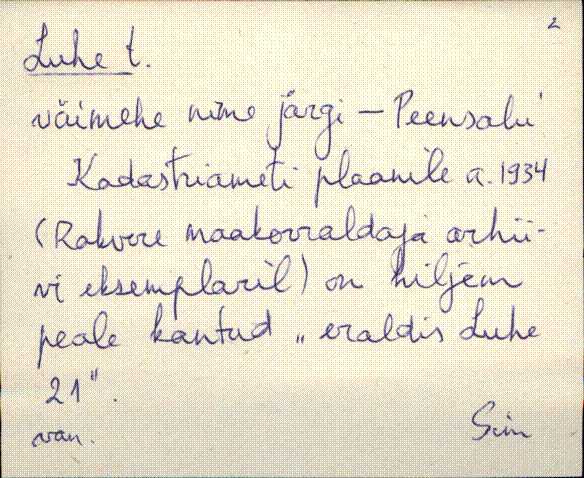 2
Luhe t.
väimehe nime järgi – Peensalu
Kadastriameti plaanile a. 1934
(Rakvere maakorraldaja arhii-
vi eksemplaril) on hiljem
peale kantud „eraldis Luhe
21".
van.